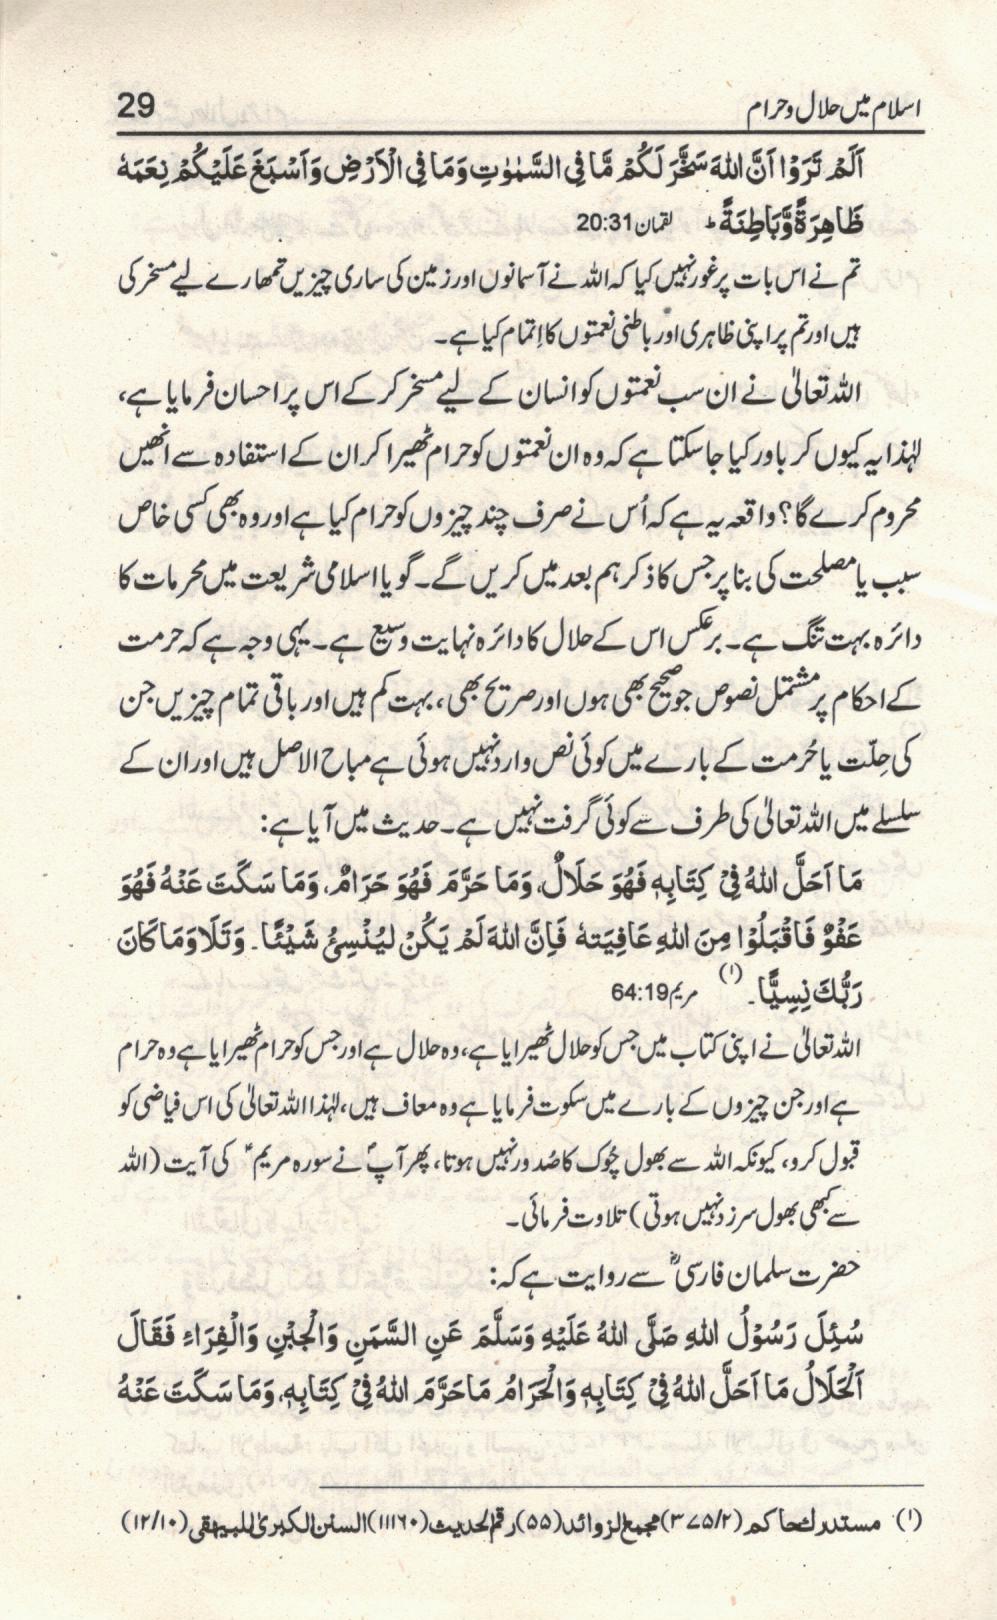 اسلام میں حلال و حرام 29
اَلَمْ تَرَوْا اَنَّ اللّٰهَ سَخَّرَ لَكُمْ مَّا فِي السَّمٰوٰتِ وَمَا فِي الْاَرْضِ وَاَسْبَغَ عَلَيْكُمْ نِعَمَهٗ
ظَاهِرَةً وَّبَاطِنَةً ؕ لقمان 20:31
تم نے اس بات پر غور نہیں کیا کہ اللہ نے آسمانوں اور زمین کی ساری چیزیں تمھارے لیے مسخر کی
ہیں اور تم پر اپنی ظاہری اور باطنی نعمتوں کا اِتمام کیا ہے۔
اللہ تعالیٰ نے ان سب نعمتوں کو انسان کے لیے مسخر کر کے اس پر احسان فرمایا ہے،
لہٰذا یہ کیوں کر باور کیا جا سکتا ہے کہ وہ ان نعمتوں کو حرام ٹھیرا کر ان کے استفادہ سے انھیں
محروم کرے گا؟ واقعہ یہ ہے کہ اُس نے صرف چند چیزوں کو حرام کیا ہے اور وہ بھی کسی خاص
سبب یا مصلحت کی بنا پر جس کا ذکر ہم بعد میں کریں گے۔ گویا اسلامی شریعت میں محرمات کا
دائرہ بہت تنگ ہے۔ برعکس اس کے حلال کا دائرہ نہایت وسیع ہے۔ یہی وجہ ہے کہ حرمت
کے احکام پر مشتمل نصوص جو صحیح بھی ہوں اور صریح بھی، بہت کم ہیں اور باقی تمام چیزیں جن
کی حِلّت یا حُرمت کے بارے میں کوئی نص وارد نہیں ہوئی ہے مباح الاصل ہیں اور ان کے
سلسلے میں اللہ تعالیٰ کی طرف سے کوئی گرفت نہیں ہے۔ حدیث میں آیا ہے:
مَا اَحَلَّ اللّٰهُ فِيْ كِتَابِهٖ فَهُوَ حَلَالٌ، وَمَا حَرَّمَ فَهُوَ حَرَامٌ، وَمَا سَكَتَ عَنْهُ فَهُوَ
عَفْوٌ فَاقْبَلُوْا مِنَ اللّٰهِ عَافِيَتهٗ فَاِنَّ اللّٰهَ لَمْ يَكُنْ لِيُنْسِئُ شَيْئًا۔ وَتَلَا وَمَا كَانَ
رَبُّكَ نِسِيًّا۔ (۱) مریم 64:19
اللہ تعالیٰ نے اپنی کتاب میں جس کو حلال ٹھیرایا ہے، وہ حلال ہے اور جس کو حرام ٹھیرایا ہے وہ حرام
ہے اور جن چیزوں کے بارے میں سکوت فرمایا ہے وہ معاف ہیں، لہٰذا اللہ تعالیٰ کی اس فیاضی کو
قبول کرو، کیونکہ اللہ سے بھول چُوک کا صُدور نہیں ہوتا، پھر آپؐ نے سورہ مریمؑ کی آیت (اللہ
سے کبھی بھول سرزد نہیں ہوتی) تلاوت فرمائی۔
حضرت سلمان فارسیؓ سے روایت ہے کہ:
سُئِلَ رَسُوْلُ اللّٰهِ صَلَّى اللّٰهُ عَلَيْهِ وَسَلَّمَ عَنِ السَّمَنِ وَالْجُبْنِ وَالْفِرَاءِ فَقَالَ
اَلْحَلَالُ مَا اَحَلَّ اللّٰهُ فِيْ كِتَابِهٖ وَالْحَرَامُ مَا حَرَّمَ اللّٰهُ فِيْ كِتَابِهٖ، وَمَا سَكَتَ عَنْهُ
(۱) مستدرك حاكم (۳۷۵/۲) مجمع الزوائد (۵۵) رقم الحديث (۱۱۱۶۰) السنن الكبرىٰ للبيهقى (۱۲/۱۰)